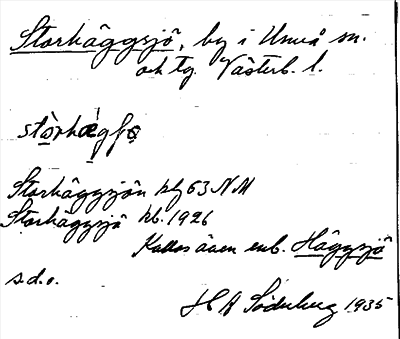 Storhäggsjö, by i Umeå sn.
och tg. Västerb. l.
Storhäggsjön hfl 63 NM
Storhäggsjö kb. 1926
Kallas även enb. Häggsjö
s.d.o.
H A Söderberg 1935